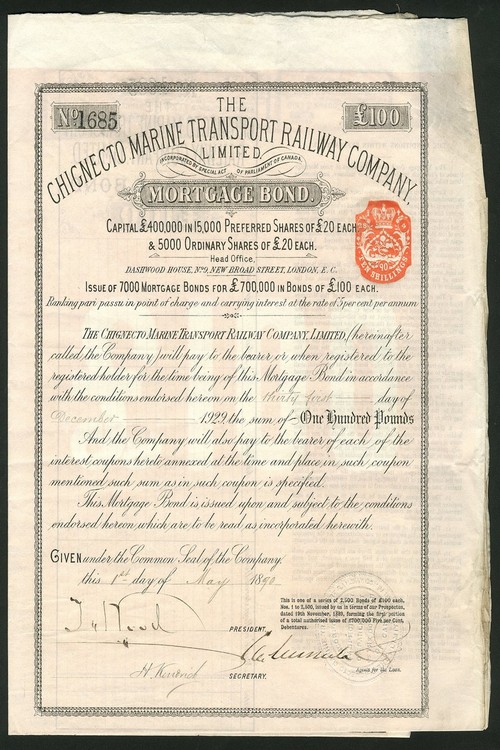 No 1685
£100
THE
CHIGNECTO MARINE TRANSPORT RAILWAY COMPANY,
LIMITED.
INCORPORATED BY SPECIAL ACT OF PARLIAMENT OF CANADA.
MORTGAGE BOND.
CAPITAL £400,000 IN 15,000 PREFERRED SHARES OF £20 EACH
& 5000 ORDINARY SHARES OF £20 EACH.
Head Office,
DASHWOOD HOUSE, No9, NEW BROAD STREET, LONDON, E. C.
ISSUE OF 7000 MORTGAGE BONDS FOR £700,000 IN BONDS OF £100 EACH.
Ranking pari passu in point of charge and carrying interest at the rate of 5 per cent per annum
TEN SHILLINGS
THE CHIGNECTO MARINE TRANSPORT RAILWAY COMPANY, LIMITED, (hereinafter
called the Company) will pay to the bearer or, when registered to the
registered holder for the time being of this Mortgage Bond in accordance
with the conditions endorsed hereon on the thirty first day of
December 1929, the sum of One Hundred Pounds
And the Company will also pay to the bearer of each of the
interest coupons hereto annexed at the time and place in such coupon
mentioned such sum as in such coupon is specified.
This Mortgage Bond is issued upon and subject to the conditions
endorsed hereon, which are to be read as incorporated herewith.
GIVEN under the Common Seal of the Company.
this 1st day of May 1890
This is one of a series of 2,500 Bonds of £100 each,
Nos. 1 to 2,500, issued by us in terms of our Prospectus,
dated 19th November, 1889, forming the first portion
of a total authorised issue of £700,000 Five per Cent.
Debentures.
PRESIDENT.
Agents for the Loan.
SECRETARY.